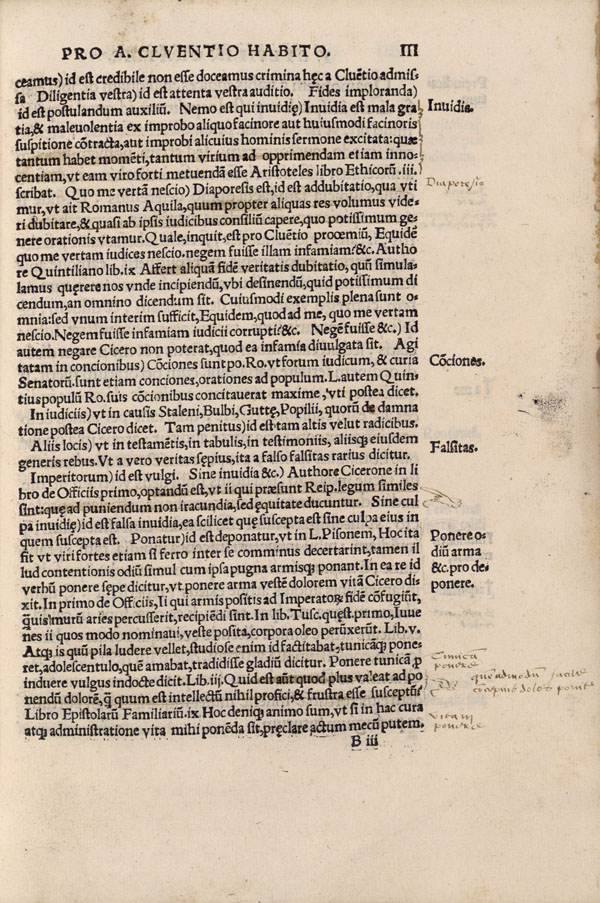 PRO A. CLVENTIO HABITO. III
ceamus) id est credibile non esse doceamus crimina hęc a Cluētio admis-
sa Diligentia vestra) id est attenta vestra auditio. Fides imploranda)
id est postulandum auxiliū. Nemo est qui inuidię) Inuidia est mala gra
tia,& maleuolentia ex improbo aliquo facinore aut huiusmodi facinoris
suspitione cōtracta, aut improbi alicuius hominis sermone excitata: quæ
tantum habet momēti, tantum virium ad opprimendam etiam inno-
centiam, vt eam viro forti metuendā esse Aristoteles libro Ethicorū .iii.
scribat. Quo me vertā nescio) Diaporesis est, id est addubitatio, qua vti
mur, vt ait Romanus Aquila, quum propter aliquas res volumus vide-
ri dubitare, & quasi ab ipsis iudicibus consiliū capere, quo potissimum ge-
nere orationis vtamur. Quale, inquit, est pro Cluētio prœemiū, Equidē
quo me vertam iudices nescio. negem fuisse illam infamiam?&c. Autho
re Quintiliano lib.ix Affert aliquā fidē veritatis dubitatio, quū simula-
lamus quęrere nos vnde incipiendū, vbi desinendū, quid potissimum di
cendum, an omnino dicendum sit. Cuiusmodi exemplis plena sunt o-
mnia: sed vnum interim sufficit, Equidem, quod ad me, quo me vertam
nescio. Negem fuisse infamiam iudicii corrupti?&c. Negē fuisse &c.) Id
autem negare Cicero non poterat, quod ea infamia diuulgata sit. Agi
tatam in concionibus) Cōciones sunt po. Ro. vt forum iudicum, & curia
Senatorū. sunt etiam conciones, orationes ad populum. L. autem Quin-
tius populū Ro. suis cōcionibus concitauerat maxime, vti postea dicet.
In iudiciis) vt in causis Staleni, Bulbi, Guttę, Popilii, quorū de damna
tione postea Cicero dicet. Tam penitus) id est tam altis velut radicibus.
Aliis locis) vt in testamētis, in tabulis, in testimoniis, aliisq; eiusdem
generis rebus. Vt a vero veritas sępius, ita a falso falsitas rarius dicitur.
Imperitorum) id est vulgi. Sine inuidia &c.) Authore Cicerone in li
bro de Officiis primo, optandū est, vt ii qui præsunt Reip. legum similes
sint: quę ad puniendum non iracundia, sed ęquitate ducuntur. Sine cul
pa inuidię) id est falsa inuidia, ea scilicet quę suscepta est sine culpa eius in
quem suscepta est. Ponatur) id est deponatur, vt in L. Pisonem, Hoc ita
fit vt viri fortes etiam si ferro inter se comminus decertarint, tamen il
lud contentionis odiū simul cum ipsa pugna armisq; ponant. In ea re id
verbū ponere sępe dicitur, vt ponere arma vestē dolorem vitā Cicero di-
xit. In primo de Officiis, Ii qui armis positis ad Imperatorū fidē cōfugiūt,
q̃uis murū aries percusserit, recipiēdi sint. In lib. Tusc. quęst. primo, Iuue
nes ii quos modo nominaui, veste posita, corpora oleo perūxerūt. Lib. v.
Atq; is quū pila ludere vellet, studiose enim id factitabat, tunicāq; pone-
ret, adolescentulo, quē amabat, tradidisse gladiū dicitur. Ponere tunicā p̱
induere vulgus indocte dicit. Lib. iii. Quid est aūt quod plus valeat ad po
nendū dolorē, q̃ quum est intellectū nihil profici, & frustra esse susceptū?
Libro Epistolarū Familiariū.ix Hoc deniq; animo sum, vt si in hac cura
atq; administratione vita mihi ponēda sit, pręclare actum mecū putem.
B iii
Inuidia.
Diaporesis
Cōciones.
Falsitas.
Ponere o-
diū arma
&c. pro de-
ponere.
Tunicā
ponere
quēadmodū facile
vitam
ponere